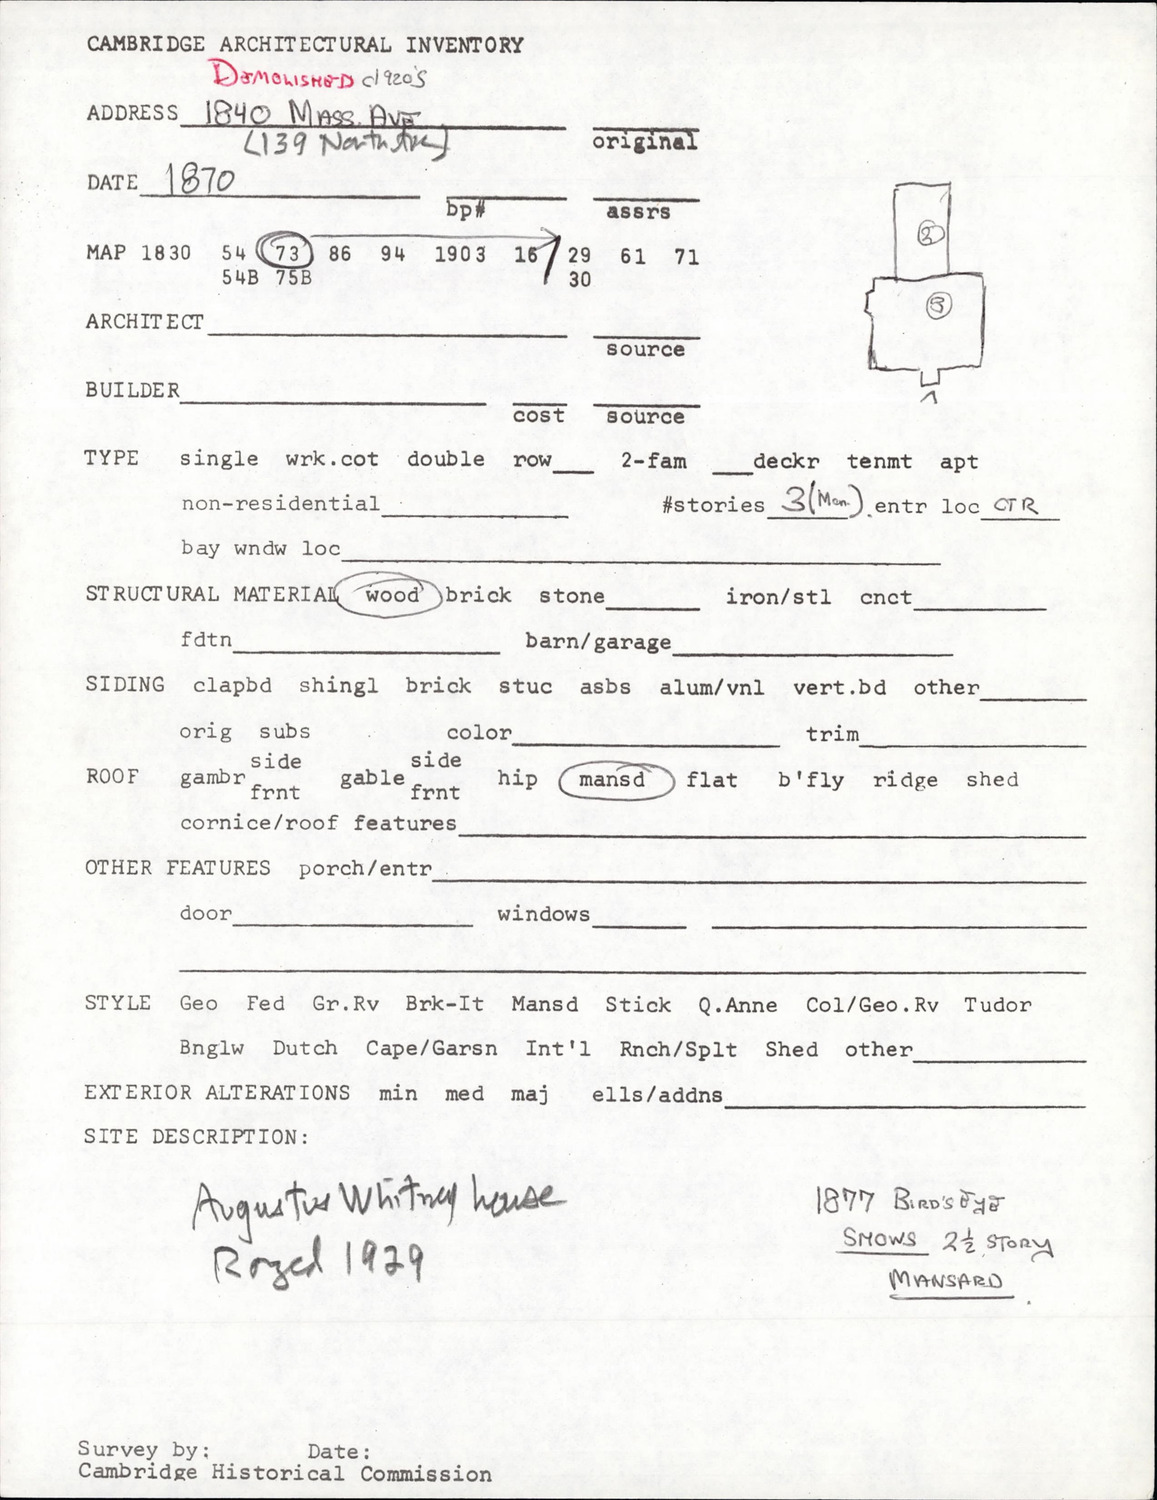 CAMBRIDGE ARCHITECTURAL INVENTORY
DEMOLISHED c1920'S
ADDRESS 1840 MASS. AVE
(139 North Ave) original
DATE 1870 bp# assrs
MAP 1830 54 73 86 94 1903 16 29 61 71
54B 75B 30
2
3
ARCHITECT source
BUILDER cost source
TYPE single wrk.cot double row 2-fam deckr tenmt apt
non-residential #stories 3 (Man.) entr loc CTR
bay wndw loc
STRUCTURAL MATERIAL wood brick stone iron/stl cnct
fdtn barn/garage
SIDING clapbd shingl brick stuc asbs alum/vnl vert.bd other
orig subs color trim
side side
ROOF gambr gable hip mansd flat b'fly ridge shed
frnt frnt
cornice/roof features
OTHER FEATURES porch/entr
door windows
STYLE Geo Fed Gr.Rv Brk-It Mansd Stick Q.Anne Col/Geo.Rv Tudor
Bnglw Dutch Cape/Garsn Int'l Rnch/Splt Shed other
EXTERIOR ALTERATIONS min med maj ells/addns
SITE DESCRIPTION:
Augustus Whitney house
Razed 1929
1877 BIRD'S EYE
SHOWS 2½ STORY
MANSARD
Survey by: Date:
Cambridge Historical Commission